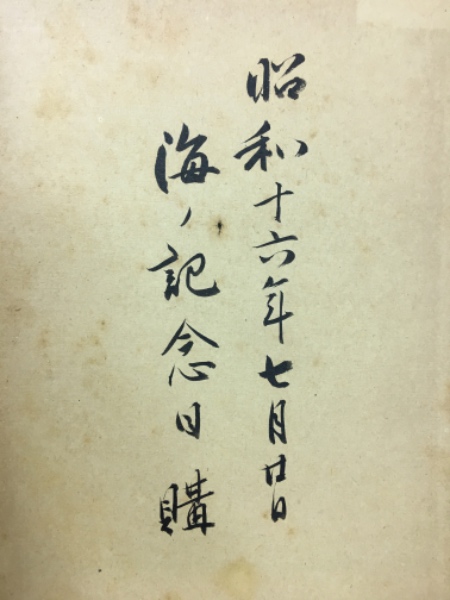 昭和十六年七月廿日
海ノ記念日 購